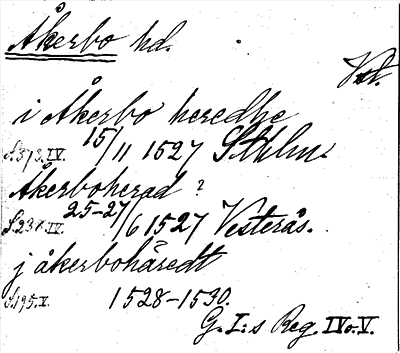 Åkerbo hd.
Vstl.
i Åkerbo heredhe
S. 373. IV. 15/11 1527 Sthlm.
Åkerboherad ?
S. 238. IV. 25-27/6 1527 Vesterås.
j åkerbohäredt
S. 195. V. 1528-1530.
G. I:s Reg. IV o. V.